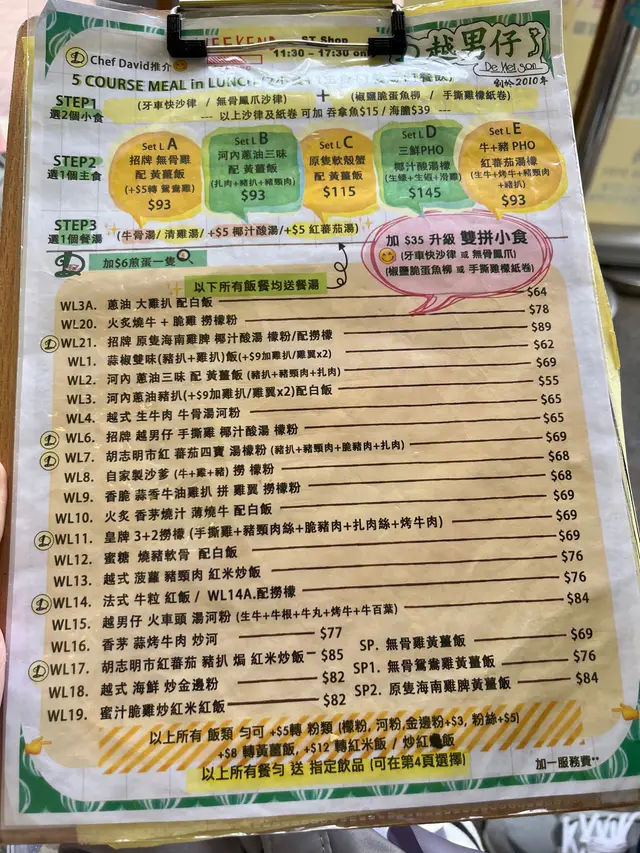 WEEKEND ST Shop
11:30 - 17:30 only
越男仔
De Nelson
創於2010年
Chef David推介
5 COURSE MEAL in LUNCH
STEP1
選2個小食
(牙車快沙律 / 無骨鳳爪沙律) + (椒鹽脆蛋魚柳 / 手撕雞檬紙卷)
--- 以上沙律及紙卷 可加 吞拿魚$15 / 海膽$39 ---
STEP2
選1個主食
Set L A
招牌 無骨雞
配 黃薑飯
(+$5轉 鴛鴦雞)
$93
Set L B
河內蔥油三味
配 黃薑飯
(扎肉+豬扒+豬頸肉)
$93
Set L C
原隻軟殼蟹
配 黃薑飯
$115
Set L D
三鮮PHO
椰汁酸湯檬
(生蠔+生蝦+滑雞)
$145
Set L E
牛+豬 PHO
紅蕃茄湯檬
(生牛+烤牛+豬頸肉+豬扒)
$93
STEP3
選1個餐湯
(牛骨湯/ 清雞湯/ +$5 椰汁酸湯/+$5 紅蕃茄湯)
加$6煎蛋一隻
加 $35 升級 雙拼小食
(牙車快沙律 或 無骨鳳爪)
(椒鹽脆蛋魚柳 或 手撕雞檬紙卷)
以下所有飯餐均送餐湯
WL3A. 蔥油 大雞扒 配白飯 $64
WL20. 火炙燒牛 + 脆雞 撈檬粉 $78
WL21. 招牌 原隻海南雞脾 椰汁酸湯 檬粉/配撈檬 $89
WL1. 蒜椒雙味(豬扒+雞扒)飯(+$9加雞扒/雞翼x2) $62
WL2. 河內 蔥油三味 配 黃薑飯 (豬扒+豬頸肉+扎肉) $69
WL3. 河內蔥油豬扒(+$9加雞扒/雞翼x2)配白飯 $55
WL4. 越式 生牛肉 牛骨湯河粉 $65
WL6. 招牌 越男仔 手撕雞 椰汁酸湯 檬粉 $65
WL7. 胡志明市紅 蕃茄四寶 湯檬粉 (豬扒+豬頸肉+脆豬肉+扎肉) $69
WL8. 自家製沙爹 (牛+雞+豬) 撈 檬粉 $68
WL9. 香脆 蒜香牛油雞扒 拼 雞翼 撈檬粉 $68
WL10. 火炙 香茅燒汁 薄燒牛 配白飯 $69
WL11. 皇牌 3+2撈檬 (手撕雞+豬頸肉絲+脆豬肉+扎肉絲+烤牛肉) $69
WL12. 蜜糖 燒豬軟骨 配白飯 $69
WL13. 越式 菠蘿 豬頸肉 紅米炒飯 $76
WL14. 法式 牛粒 紅飯 / WL14A.配撈檬 $76
WL15. 越男仔 火車頭 湯河粉 (生牛+牛根+牛丸+烤牛+牛百葉) $84
WL16. 香茅 蒜烤牛肉 炒河 $77
WL17. 胡志明市紅蕃茄 豬扒 焗 紅米炒飯 $85
WL18. 越式 海鮮 炒金邊粉 $82
WL19. 蜜汁脆雞炒紅米紅飯 $82
SP. 無骨雞黃薑飯 $69
SP1. 無骨鴛鴦雞黃薑飯 $76
SP2. 原隻海南雞脾黃薑飯 $84
以上所有 飯類 勻可 +$5轉 粉類 (檬粉, 河粉,金邊粉+$3, 粉絲+$5)
+$8 轉黃薑飯, +$12 轉紅米飯 / 炒紅飯
以上所有餐勻 送 指定飲品 (可在第4頁選擇)
加一服務費**